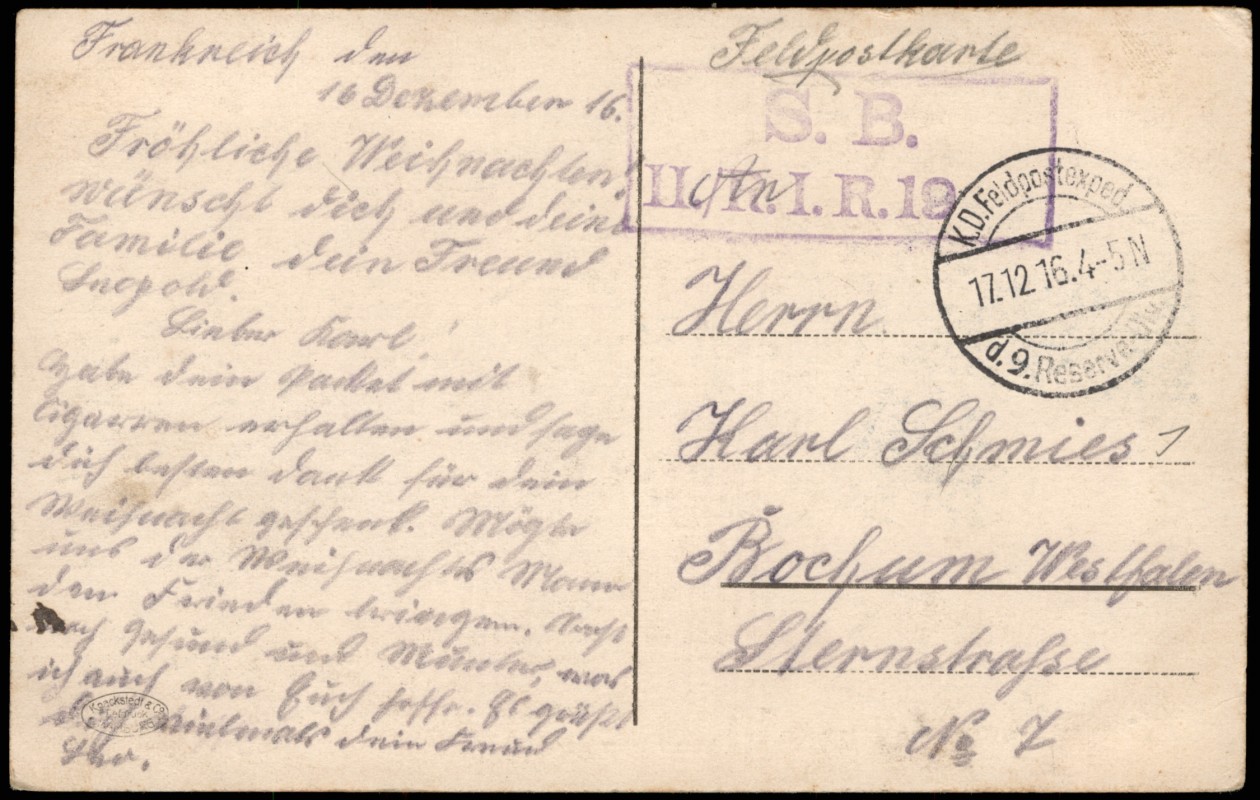 Frankreich den
16 Dezember 16.
Fröhliche Weihnachten
wünscht dich und deine
Familie dein Freund
Leopold.
Lieber Karl!
Habe dein Packet mit
Cigarren erhalten und sage
dich besten dank für dein
Weihnacht geschenk. Mögte
uns der Weihnachts Mann
den Frieden bringen. Sonst
noch gesund und Munter, was
ich auch von Euch hoffe. Es grüßt
vielmals dein Freund
Leo.
Kaackstedt & Co
Feldpostkarte
S. B.
II./R. I. R. 19
An
K.D. Feldpostexped
17.12.16.4-5N
d. 9. Reserve
Herrn
Karl Schmies
Bochum Westfalen
Sternstrasse
No 7